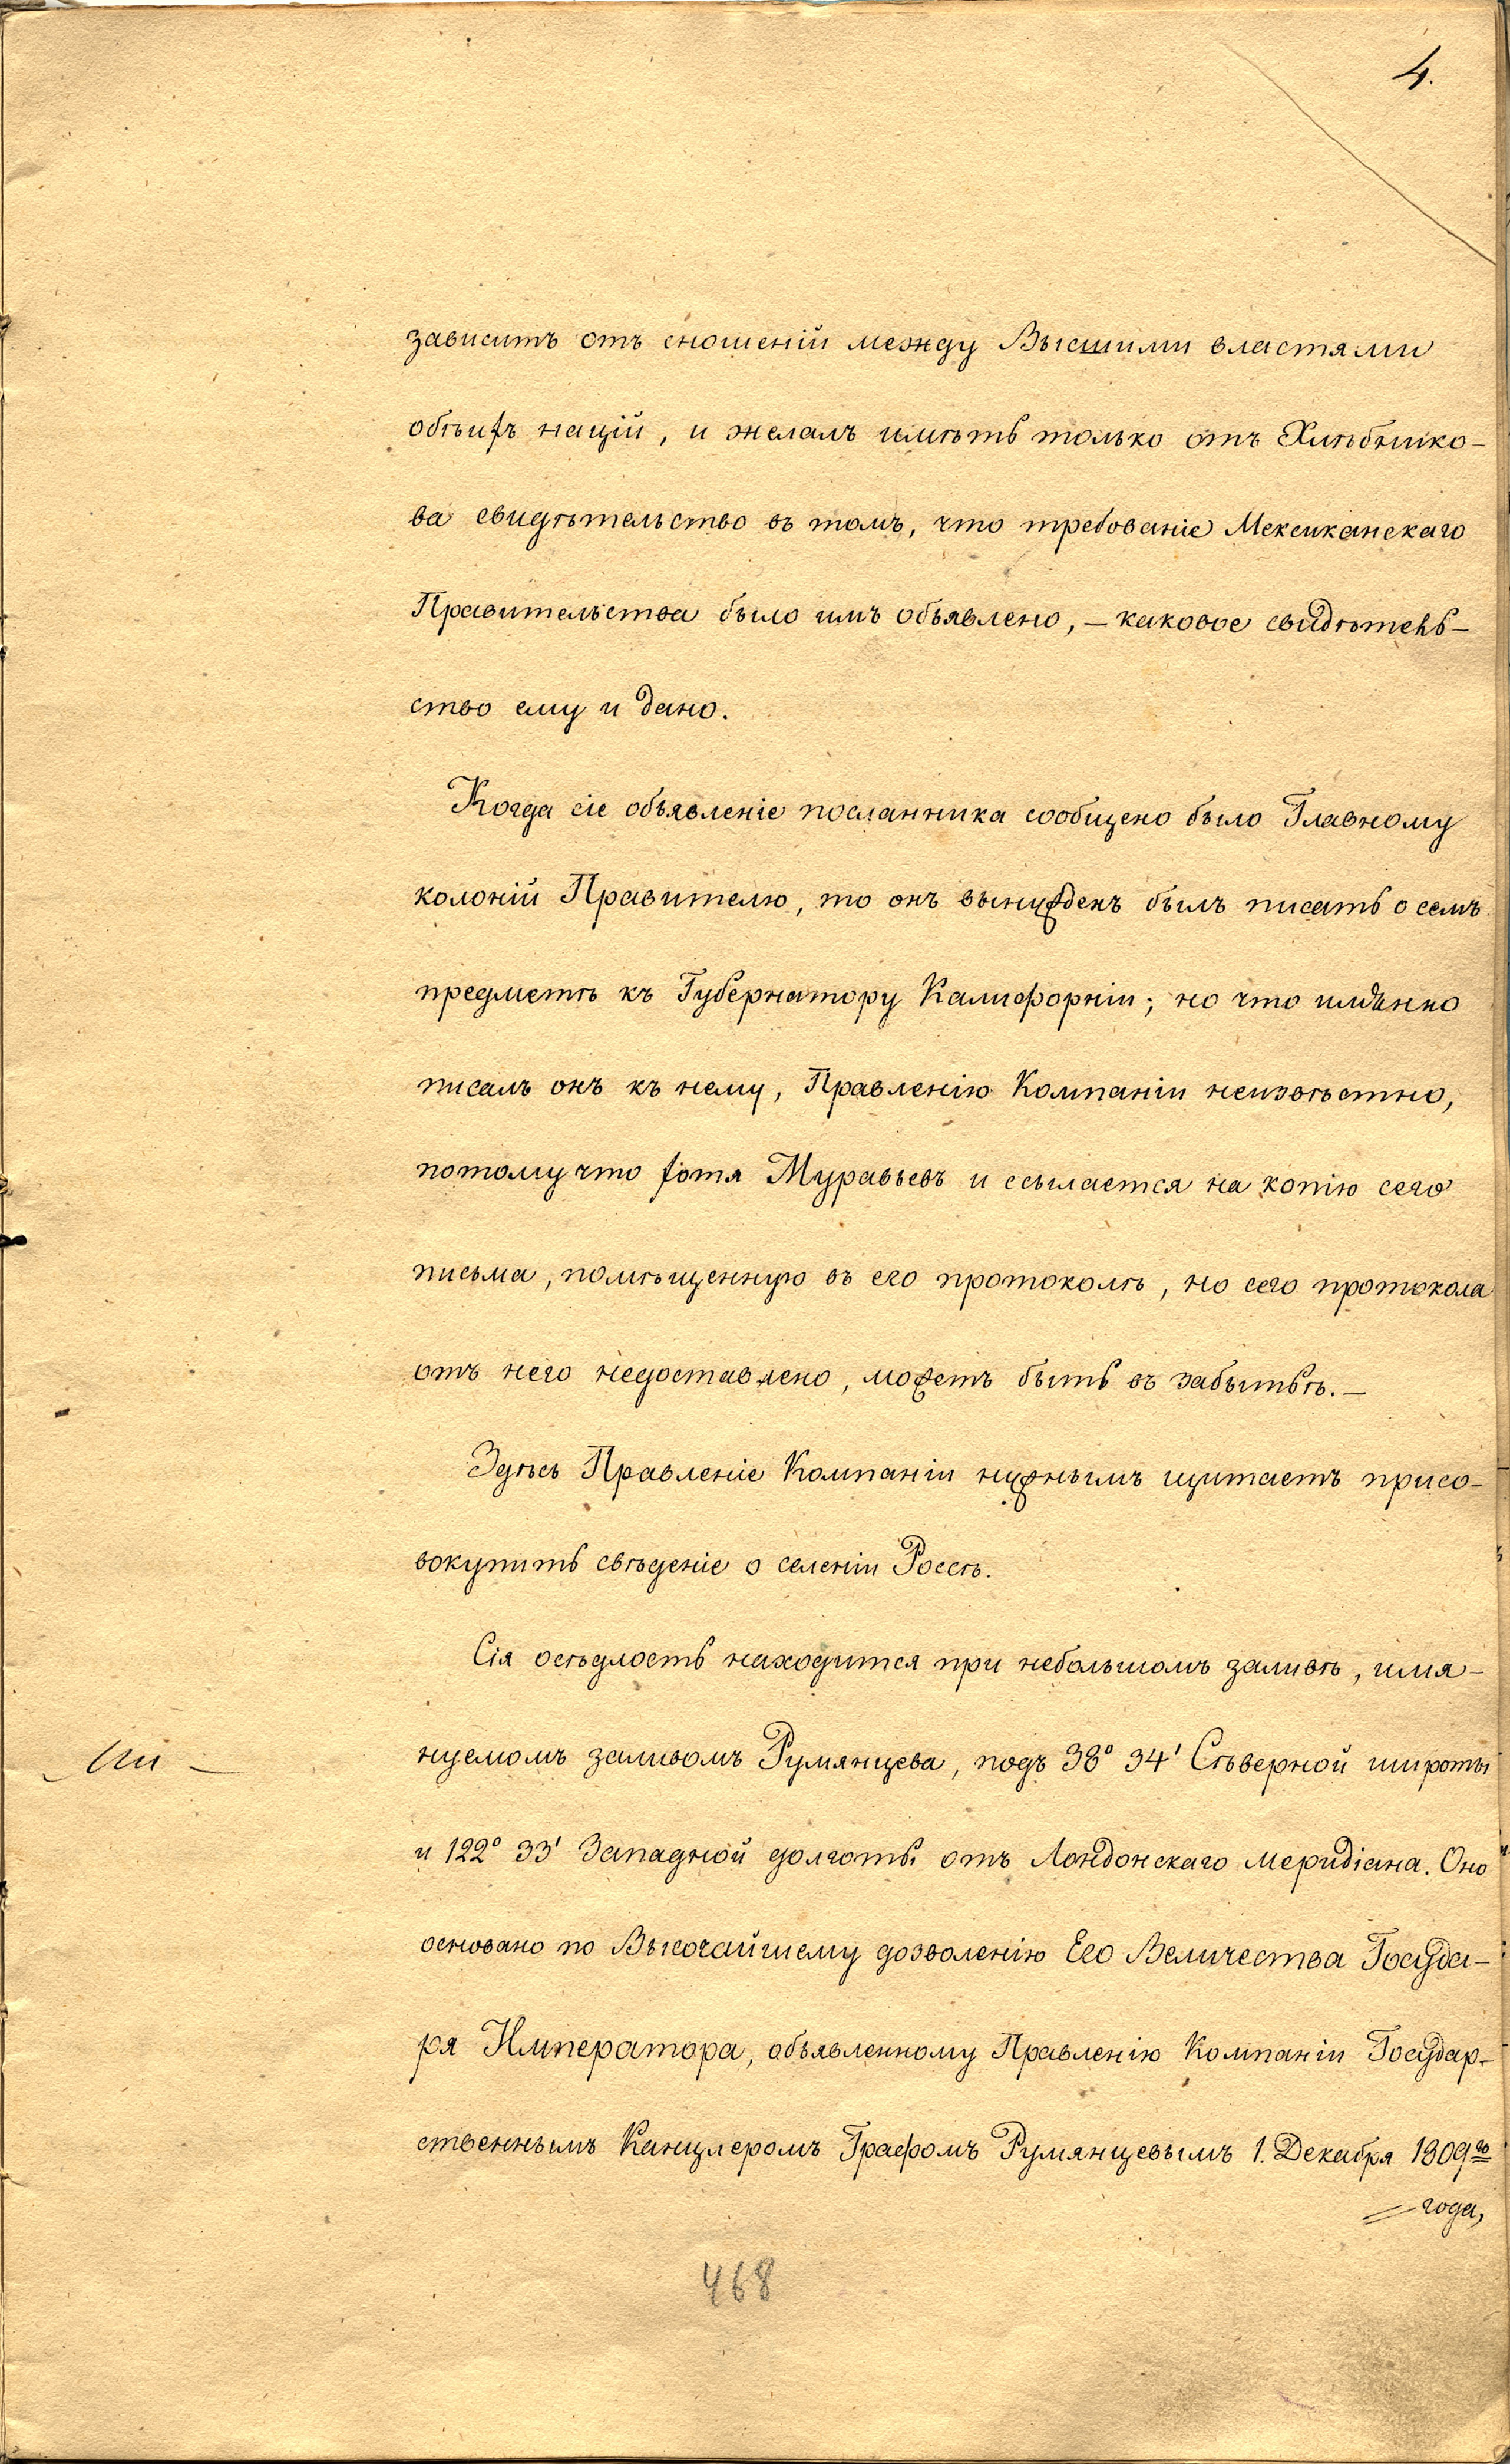 4.
зависитъ отъ сношеній между Высшими властями
обѣихъ націй, и желалъ имѣть только отъ Хлѣбнико-
ва свидѣтельство въ томъ, что требованіе Мексиканскаго
Правительства было имъ объявлено, — каковое свидѣтель-
ство ему и дано.
Когда сіе объявленіе посланника сообщено было Главному
колоній Правителю, то онъ вынужденъ былъ писать о семъ
предметѣ къ Губернатору Калифорніи; но что имянно
писалъ онъ къ нему, Правленію Компаніи неизвѣстно,
потому что хотя Муравьевъ и ссылается на копію сего
письма, помѣщенную въ его протоколѣ, но сего протокола
отъ него недоставлено, можетъ быть въ забытьѣ. —
Здѣсь Правленіе Компаніи нужнымъ щитаетъ присо-
вокупить свѣденіе о селеніи Россѣ.
Сія осѣдлость находится при небольшомъ заливѣ, имя-
нуемомъ заливомъ Румянцева, подъ 38° 34' Сѣверной широты
и 122° 33' Западной долготы отъ Лондонскаго меридіана. Оно
основано по Высочайшему дозволенію Его Величества Госуда-
ря Императора, объявленному Правленію Компаніи Государ-
ственнымъ Канцлеромъ Графомъ Румянцевымъ 1. Декабря 1809го
года,
468